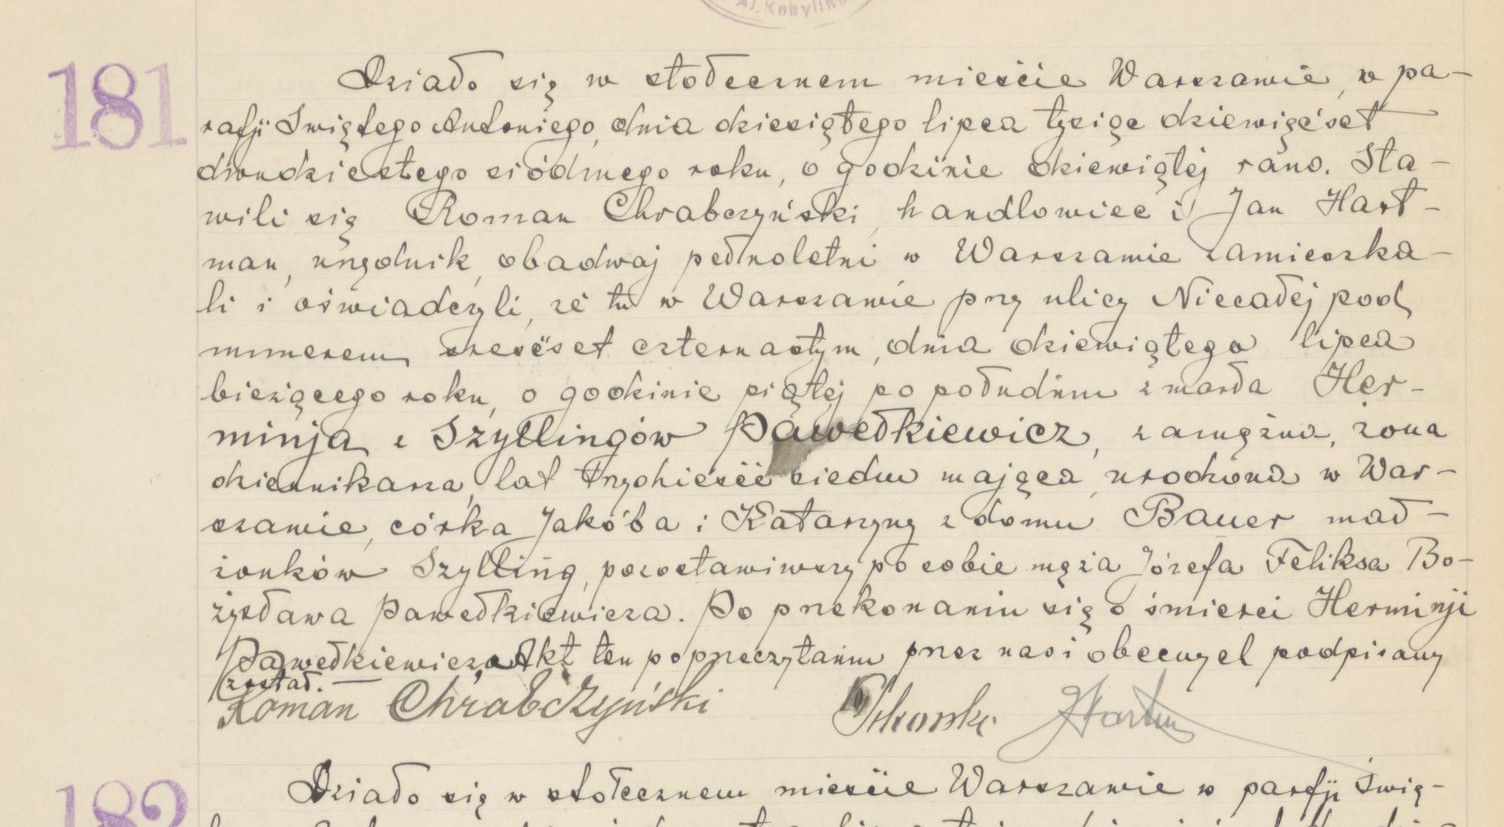 Al. Kobyliń
181
Działo się w stołecznem mieście Warszawie, w pa-
rafji Świętego Antoniego, dnia dziesiątego lipca tysiąc dziewięćset
dwudziestego siódmego roku, o godzinie dziewiątej rano. Sta-
wili się Roman Chrabczyński, handlowiec i Jan Hart-
man, urzędnik, obadwaj pełnoletni w Warszawie zamieszka-
li i oświadczyli, że tu w Warszawie przy ulicy Niecałej pod
numerem sześćset czternastym, dnia dziewiątego lipca
bieżącego roku, o godzinie piątej po południu zmarła Her-
minja z Szyllingów Pawełkiewicz, zamężna, żona
dziennikarza, lat trzydzieści siedm mająca, urodzona w War-
szawie, córka Jakóba i Katarzyny z domu Bauer mał-
żonków Szylling, pozostawiwszy po sobie męża Józefa Feliksa Bo-
żysława Pawełkiewicza. Po przekonaniu się o śmierci Herminji
Pawełkiewicz, Akt ten po przeczytaniu przez nas i obecnych podpisany
został.
Roman Chrabczyński JHartm
182
Działo się w stołecznem mieście Warszawie w parfji Świę-